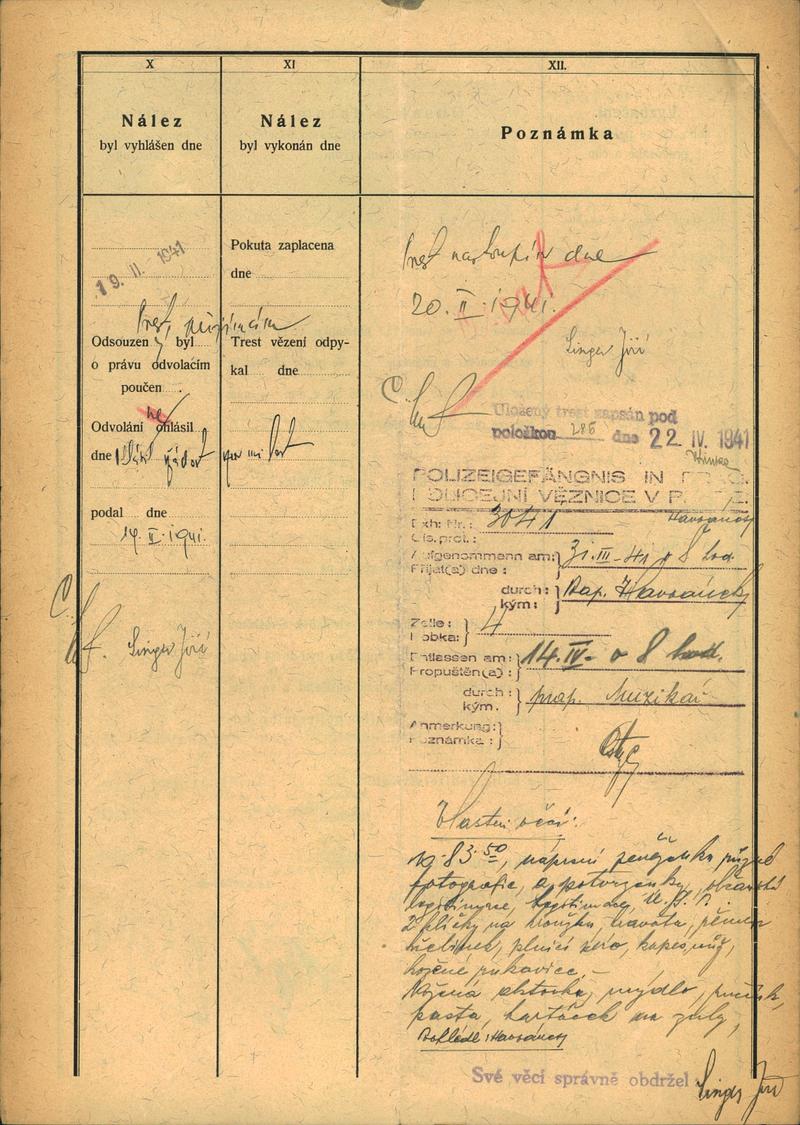 X
Nález
byl vyhlášen dne
19. II. 1941
Trest přijímám
Odsouzen byl
o právu odvolacím
poučen
Odvolání ne ohlásil
dne
podal dne
14. II. 1941.
Singer Jiří
XI
Nález
byl vykonán dne
Pokuta zaplacena
dne
Trest vězení odpy-
kal dne
XII.
Poznámka
Trest nastoupím dne
20. II. 1941.
Singer Jiří
Uložený trest zapsán pod
položkou 286 dne 22 IV. 1941
POLIZEIGEFÄNGNIS IN
POLICEJNÍ VĚZNICE V
Exh. Nr.: 3041
Čís. prot.:
Havránek
Aufgenommen am: 31. III-41 o 8 hod.
Přijat(a) dne:
durch: Havránek
kým:
Zelle: 4
Kobka:
Entlassen am: 14. IV- o 8 hod.
Propuštěn(a):
durch: prap. Muzikář
kým.
Anmerkung:
Poznámka:
Vlastní věci:
83.50, náprsní peněženka
fotografie, a potvrzenky, občanská
legitimace,
2 klíčky na kroužku,
plnicí péro, kapes. nůž,
kožené rukavice.-
mýdlo,
pasta, kartáček na zuby,
Havránek
Své věci správně obdržel Singer Jiří